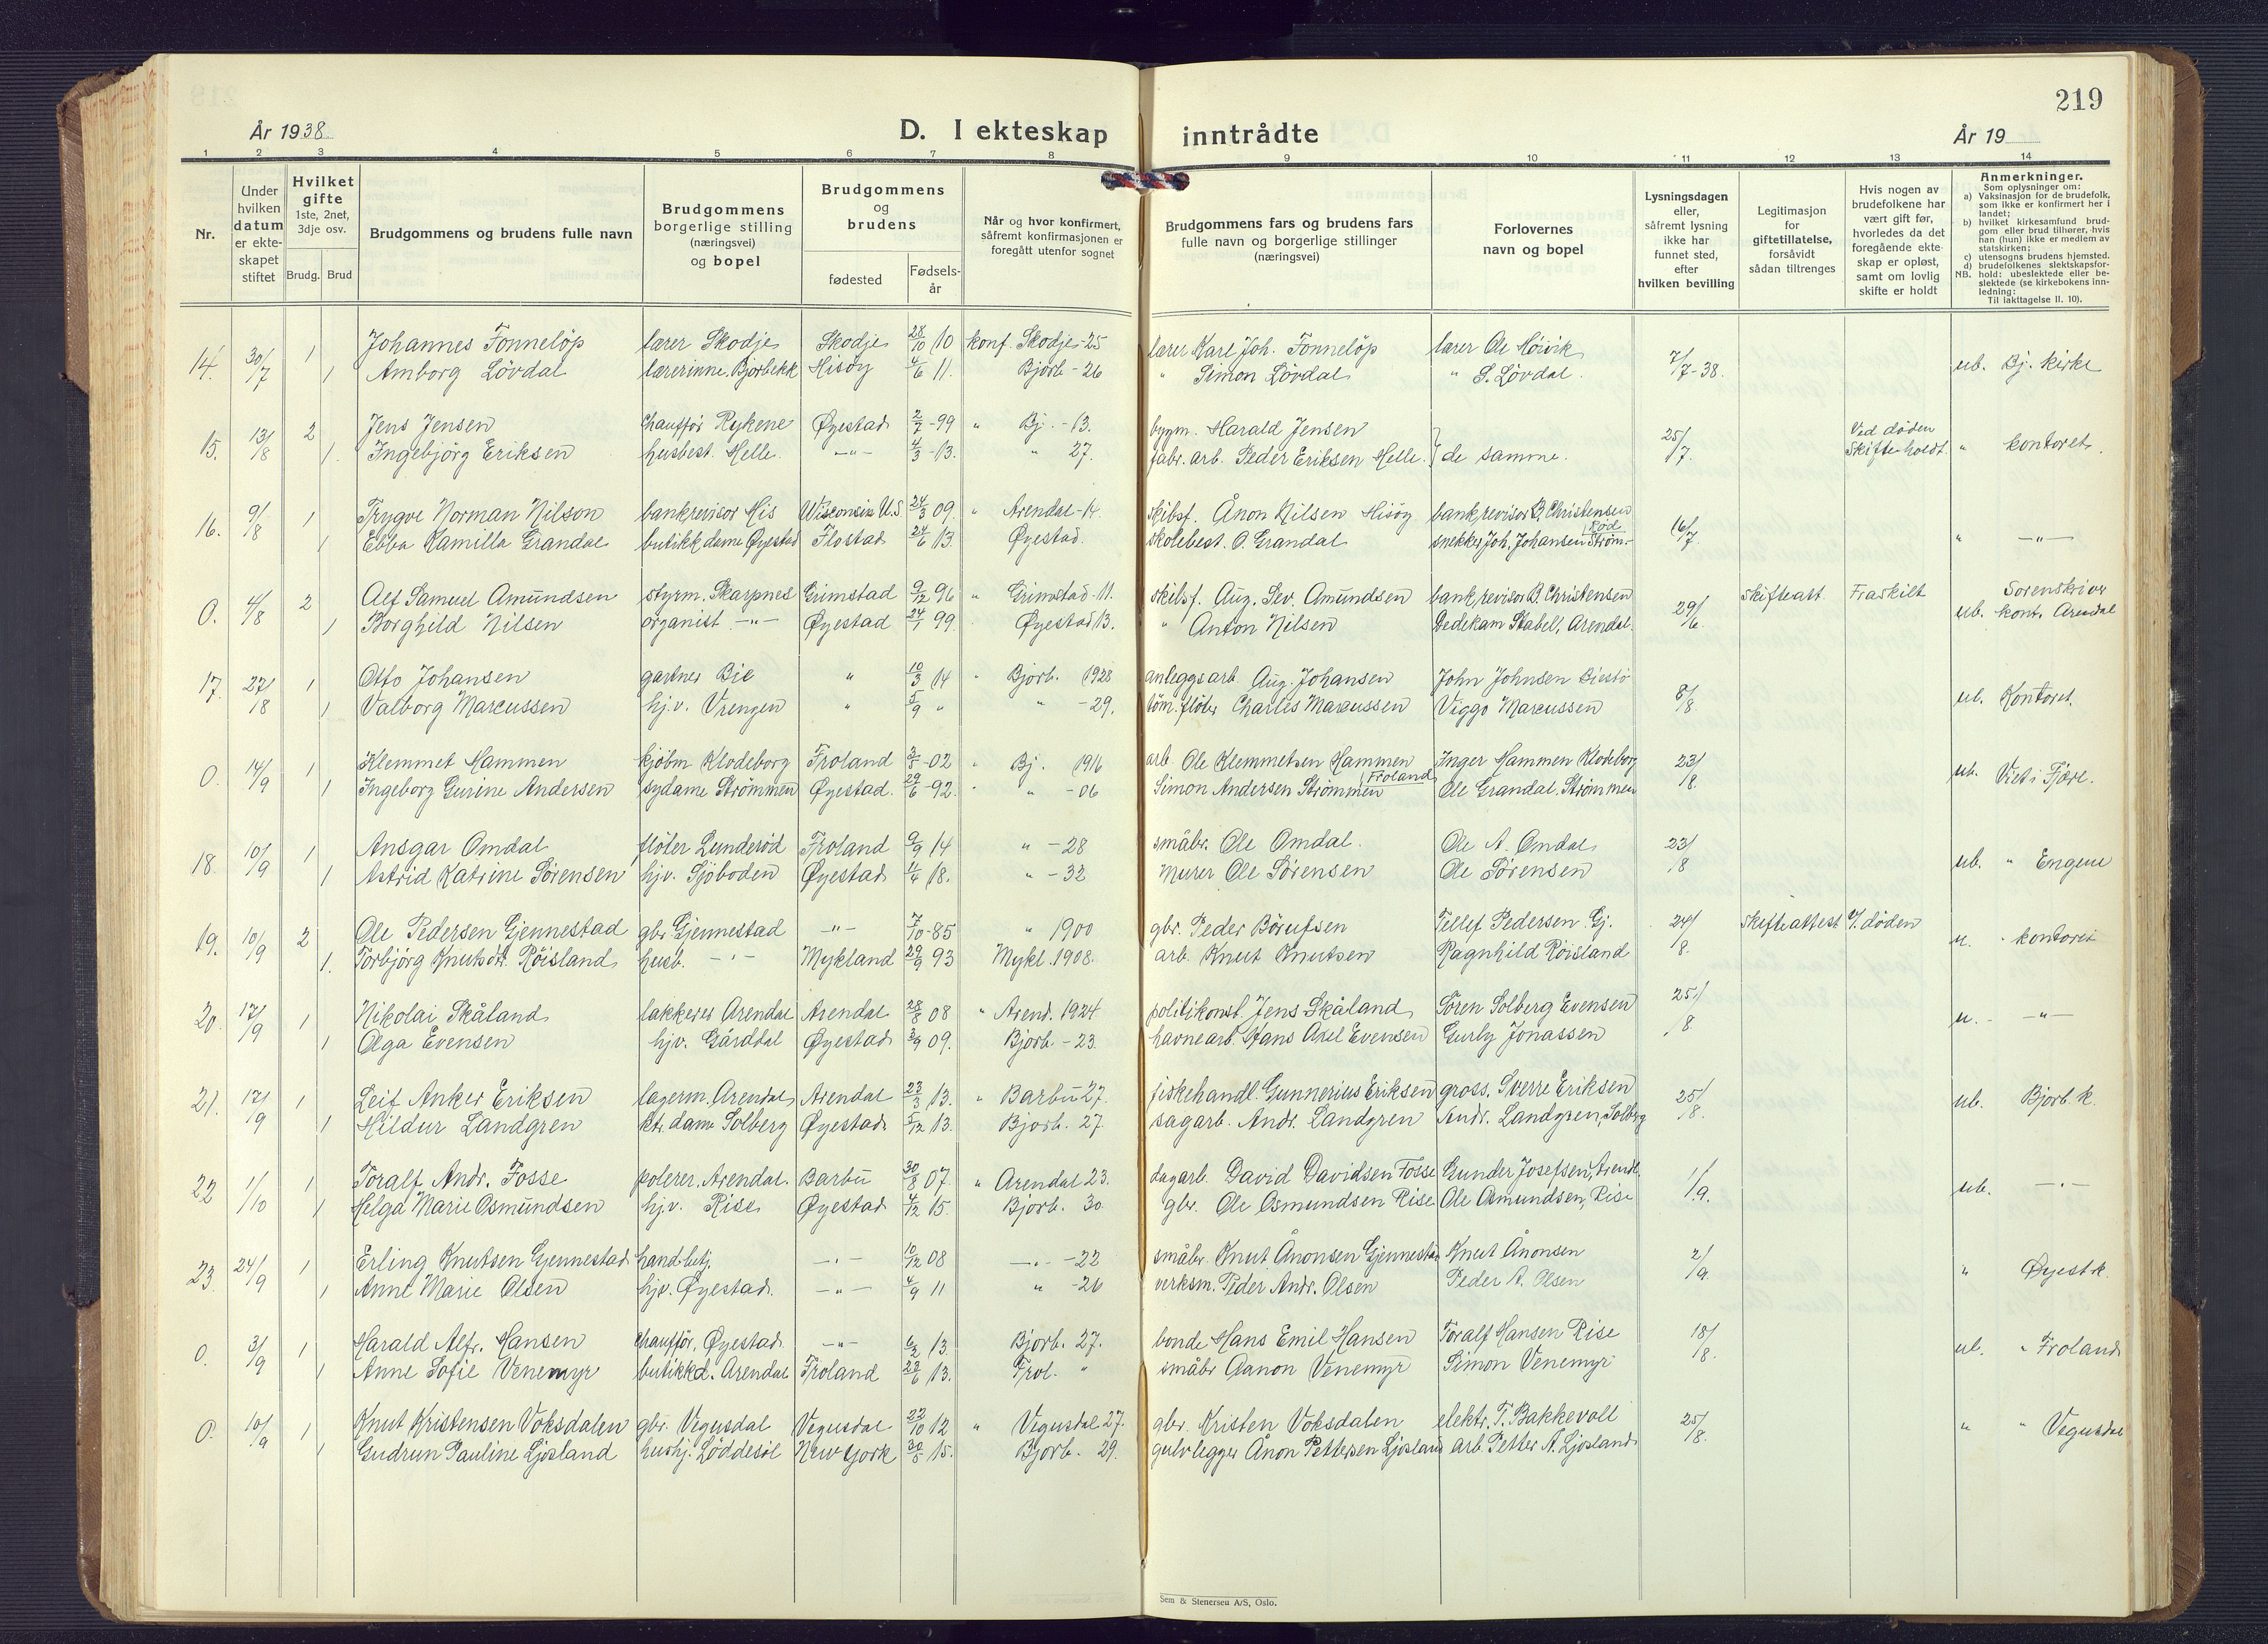 219
År 1938
D. I ekteskap inntrådte
År 19
1 2 3 4 5 6 7 8 9 10 11 12 13 14
Nr.
Under hvilken datum er ekte-skapet stiftet
Hvilket gifte 1ste, 2net, 3dje osv.
Brudg. Brud
Brudgommens og brudens fulle navn
Brudgommens borgerlige stilling (næringsvei) og bopel
Brudgommens og brudens
fødested
Fødsels-år
Når og hvor konfirmert, såfremt konfirmasjonen er foregått utenfor sognet
Brudgommens fars og brudens fars fulle navn og borgerlige stillinger (næringsvei)
Forlovernes navn og bopel
Lysningsdagen eller, såfremt lysning ikke har funnet sted, efter hvilken bevilling
Legitimasjon for giftetillatelse, forsåvidt sådan tiltrenges
Hvis nogen av brudefolkene har vært gift før, hvorledes da det foregående ekte-skap er opløst, samt om lovlig skifte er holdt
Anmerkninger.
Som oplysninger om:
a) Vaksinasjon for de brudefolk, som ikke er konfirmert her i landet;
b) hvilket kirkesamfund brud-gom eller brud tilhører, hvis han (hun) ikke er medlem av statskirken;
c) utensogns brudens hjemsted.
d) brudefolkenes slektskapsfor-hold: ubeslektede eller be-slektede (se kirkebokens inn-ledning:
NB.
Til iakttagelse II. 10).
14. 30/7 1 Johannes Fonneløp lærer Skodje Skodje 28/10 10 konf. Skodje-25 lærer Karl Joh. Fonneløp lærer Ole Hørvik 7/7-38. ub. Bj. kirke
1 Amborg Løvdal lærerinne. Bjorbekk Hisøy 4/6 11. Bjorb-26 " Simon Løvdal " S. Løvdal.
15. 13/8 2 Jens Jensen chauffør Rykene Øyestad 2/7-99 " Bj.-13. bygm. Harald Jensen 25/7. Ved døden Skifte holdt. " kontoret.
1. Ingebjørg Eriksen husbest. Helle. -"- 4/3-13. " 27. fabr. arb. Peder Eriksen Helle. } de samme.
16. 9/8 1 Trygve Norman Nilson bankrevisor His Wisconsin U.S 24/3 09. " Arendal-14. skibsf. Ånon Nilsen Hisøy bankrevisor B. Christensen 16/7. " -"-
1 Ebba Kamilla Grandal butikkdame Øyestad Flostad 24/6 13. Øyestad. skolebest. O. Grandal snekker Joh. Johansen Rød Strøm-
0. 4/8 2 Alf Samuel Amundsen styrm. Skarpnes Grimstad 9/12 96 " Grimstad-11. skibsf. Aug. Sev. Amundsen bankrevisor B. Christensen 29/6 skifteatt. Fraskilt Sorenskriver
1 Borghild Nilsen organist -"- Øyestad 24/7 99. Øyestad 13. " Anton Nilsen Dedekam Stabel, Arendal. ub. kont. Arendal
17. 27/8 1 Otto Johansen gartner Bie " 10/3 14 " Bjorb. 1928 anleggsarb. Aug. Johansen John Johnsen Biestø 8/8. ub. Kontoret.
1 Valborg Marcussen hj.v. Vrengen " 5/9 " " -29. tøm. fløter Charles Marcussen Viggo Marcussen
0. 14/9 1 Klemmet Hammen kjøbm Klodeborg Froland 3/5-02 " Bj. 1916 arb. Ole Klemmetsen Hammen Froland Inger Hammen Klodeborg 23/8. ub. Viet i Fjære.
1 Ingeborg Gurine Andersen sydame Strømmen Øyestad. 29/6-92. " " -06 Simon Andersen Strømmen Ole Grandal. Strømmen
18. 10/9 1 Ansgar Omdal fløter Lunderød Froland 9/9 14 " -28 småbr. Ole Omdal. Ole A. Omdal 23/8 ub. " Engene
1 Astrid Katrine Sørensen hjv. Sjøboden Øyestad 11/4 18. " -32 murer Ole Sørensen Ole Sørensen
19. 10/9 2 Ole Pedersen Gjennestad gbr. Gjennestad -"- 7/10-85 " 1900 gbr. Peder Børufsen Tellef Pedersen Gj. 24/8. Skifteattest V. døden u. " kontoret
1. Torbjørg Knutsdt. Røisland husb. -"- Mykland 29/9 93 Mykl. 1908. arb. Knut Knutsen Ragnhild Røisland
20. 17/9 1 Nikolai Skåland lakkerer Arendal Arendal 28/5 08 " Arend. 1924 politikonst. Jens Skåland Søren Solberg Evensen 25/8 u. -"-
1 Olga Evensen hjv. Gårddal Øyestad 3/9 09. Bjorb.-23. havnearb. Hans Axel Evensen Gurly Jonassen
21. 17/9 1 Leif Anker Eriksen lagerm. Arendal Arendal 23/3 13. " Barbu 27. fiskehandl. Gunnerius Eriksen gross. Sverre Eriksen 25/8. ub. Bjorb. k.
1 Hildur Landgren ktr. dame Solberg Øyestad 5/12 13. Bjorb. 27. sagarb. Andr. Landgren Andr. Landgren, Solberg
22 1/10 1 Toralf Andr. Fosse polerer. Arendal. Barbu 30/8 07 " Arendal 23. dagarb. David Davidsen Fosse Gunder Josefsen, Arendl. 1/9. ub. -"-
1 Helga Marie Osmundsen hj.v. Rise Øyestad 4/12 15. Bjorb. 30. gbr. Ole Osmundsen Rise Ole Osmundsen, Rise
23. 24/9 1 Erling Knutsen Gjennestad hand.betj. -"- 10/12 08 -"- -22 småbr. Knut Ånonsen Gjennestad Knut Ånonsen 2/9. " Øyest. k.
1 Anne Marie Olsen hjv. Øyestad. -"- 4/9 11 " -26 verksm. Peder Andr. Olsen Peder A. Olsen
0. 3/9 1 Harald Alfr. Hansen chauffør. Øyestad -"- 6/2 13 Bjorb. 27. bonde Hans Emil Hansen Toralf Hansen Rise 18/8. ub. " Froland
1 Anne Sofie Venemyr butikkd. Arendal Froland 22/6 13. Frol. " småbr Aanon Venemyr Simon Venemyr
0. 10/9 1 Knut Kristensen Voksdalen gbr. Vegusdal Vegusdal 22/10 12 " Vegusdal 27. gbr. Kristen Voksdalen elektr. T. Bakkevoll 25/8. " " Vegusdal
1 Gudrun Pauline Ljosland hushj. Løddesøl New York 30/5 15. Bjorb. 29. gulvlegger Ånon Pettersen Ljosland arb. Petter A. Ljosland
Sem & Stenersen A/S, Oslo.